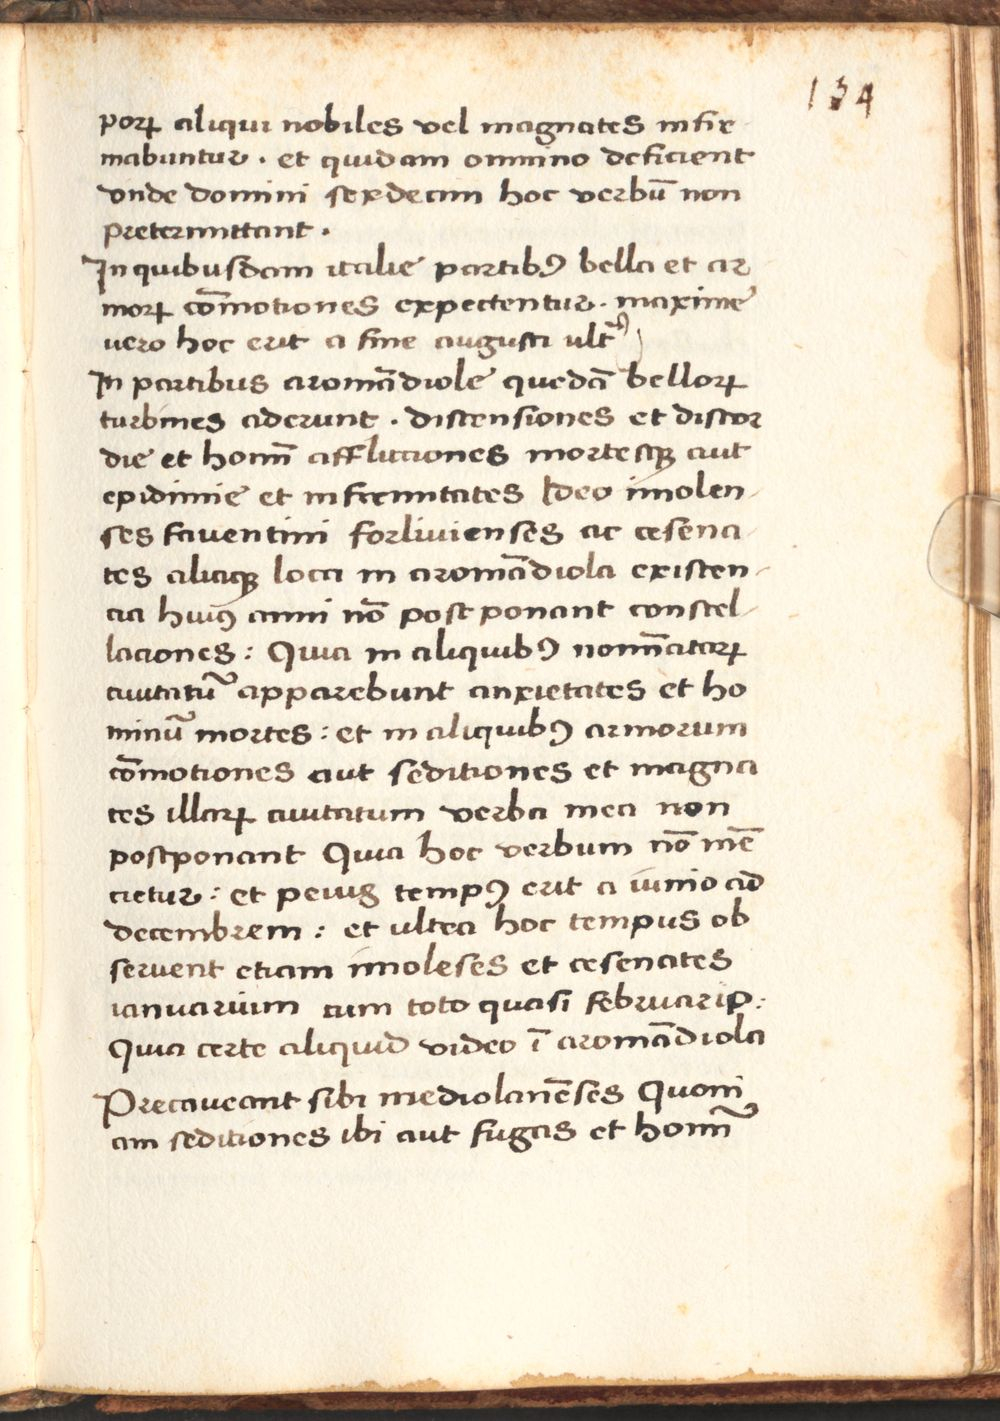 134
porꝝ aliqui nobiles vel magnates infir-
mabuntur. et quidam omnino deficient
vnde domini sexdecim hoc verbū non
pretermittant.
In quibusdam italie partibꝯ bella et ar
morꝝ cōmotiones expectentur. maxime
uero hoc erit a fine augusti ult
In partibus aromādiole quedā bellorꝝ
turbines aderunt. discensiones et discor
die et homī afflictiones mortesqꝫ aut
epidimie et infirmitates Ideo imolen-
ses faventini forliuienses ac cesena-
tes aliaqꝫ loca in aromādiola existen-
cia huiꝯ anni nō postponant constel-
laciones: Quia in aliquibꝯ nomīatarꝝ
ciuitatū apparebunt anxietates et ho
minū mortes: et in aliquibꝯ armorum
cōmotiones aut seditiones et magna
tes illarꝝ ciuitatum verba mea non
postponant Quia hoc verbum nō mē
cietur: et peius tempꝯ erit a iunio ad
decembrem: et ultra hoc tempus ob
seruent etiam imoleses et cesenates
ianuarium cum toto quasi
Quia certe aliquid video ī aromādiola
Precaveant sibi mediolanēses Quoni
am seditiones ibi aut fugas et homī